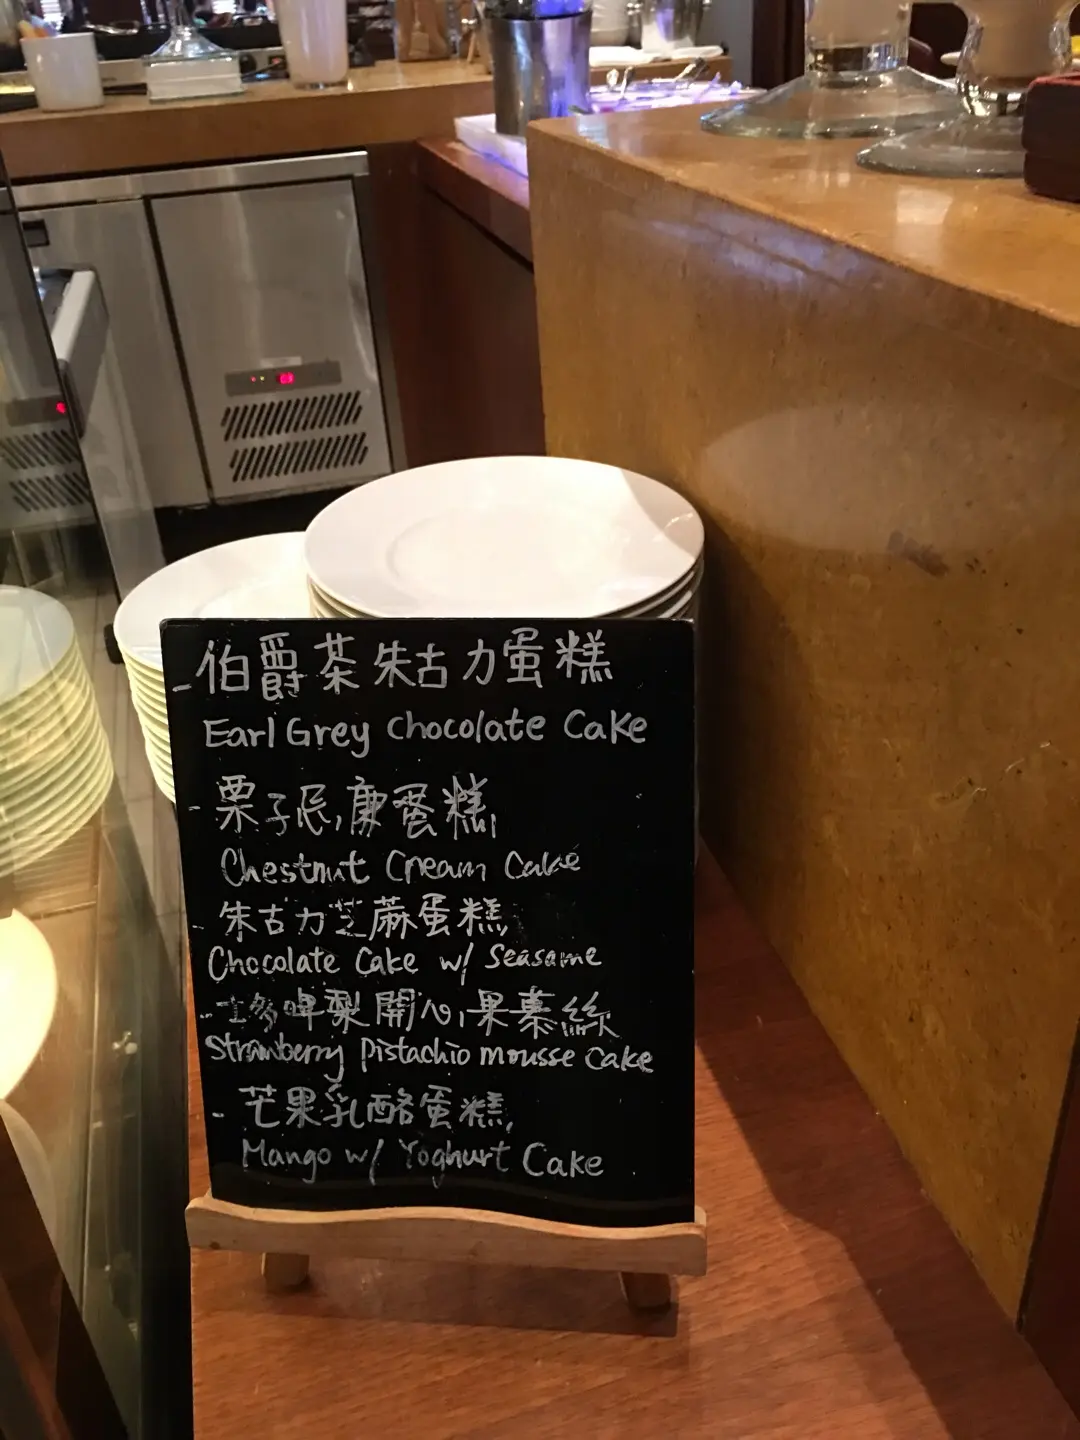 - 伯爵茶朱古力蛋糕
Earl Grey Chocolate Cake
- 栗子忌廉蛋糕
Chestnut Cream Cake
- 朱古力芝蔴蛋糕
Chocolate Cake w/ Seasame
- 士多啤梨開心果慕絲
Strawberry Pistachio mousse Cake
- 芒果乳酪蛋糕
Mango w/ Yoghurt Cake